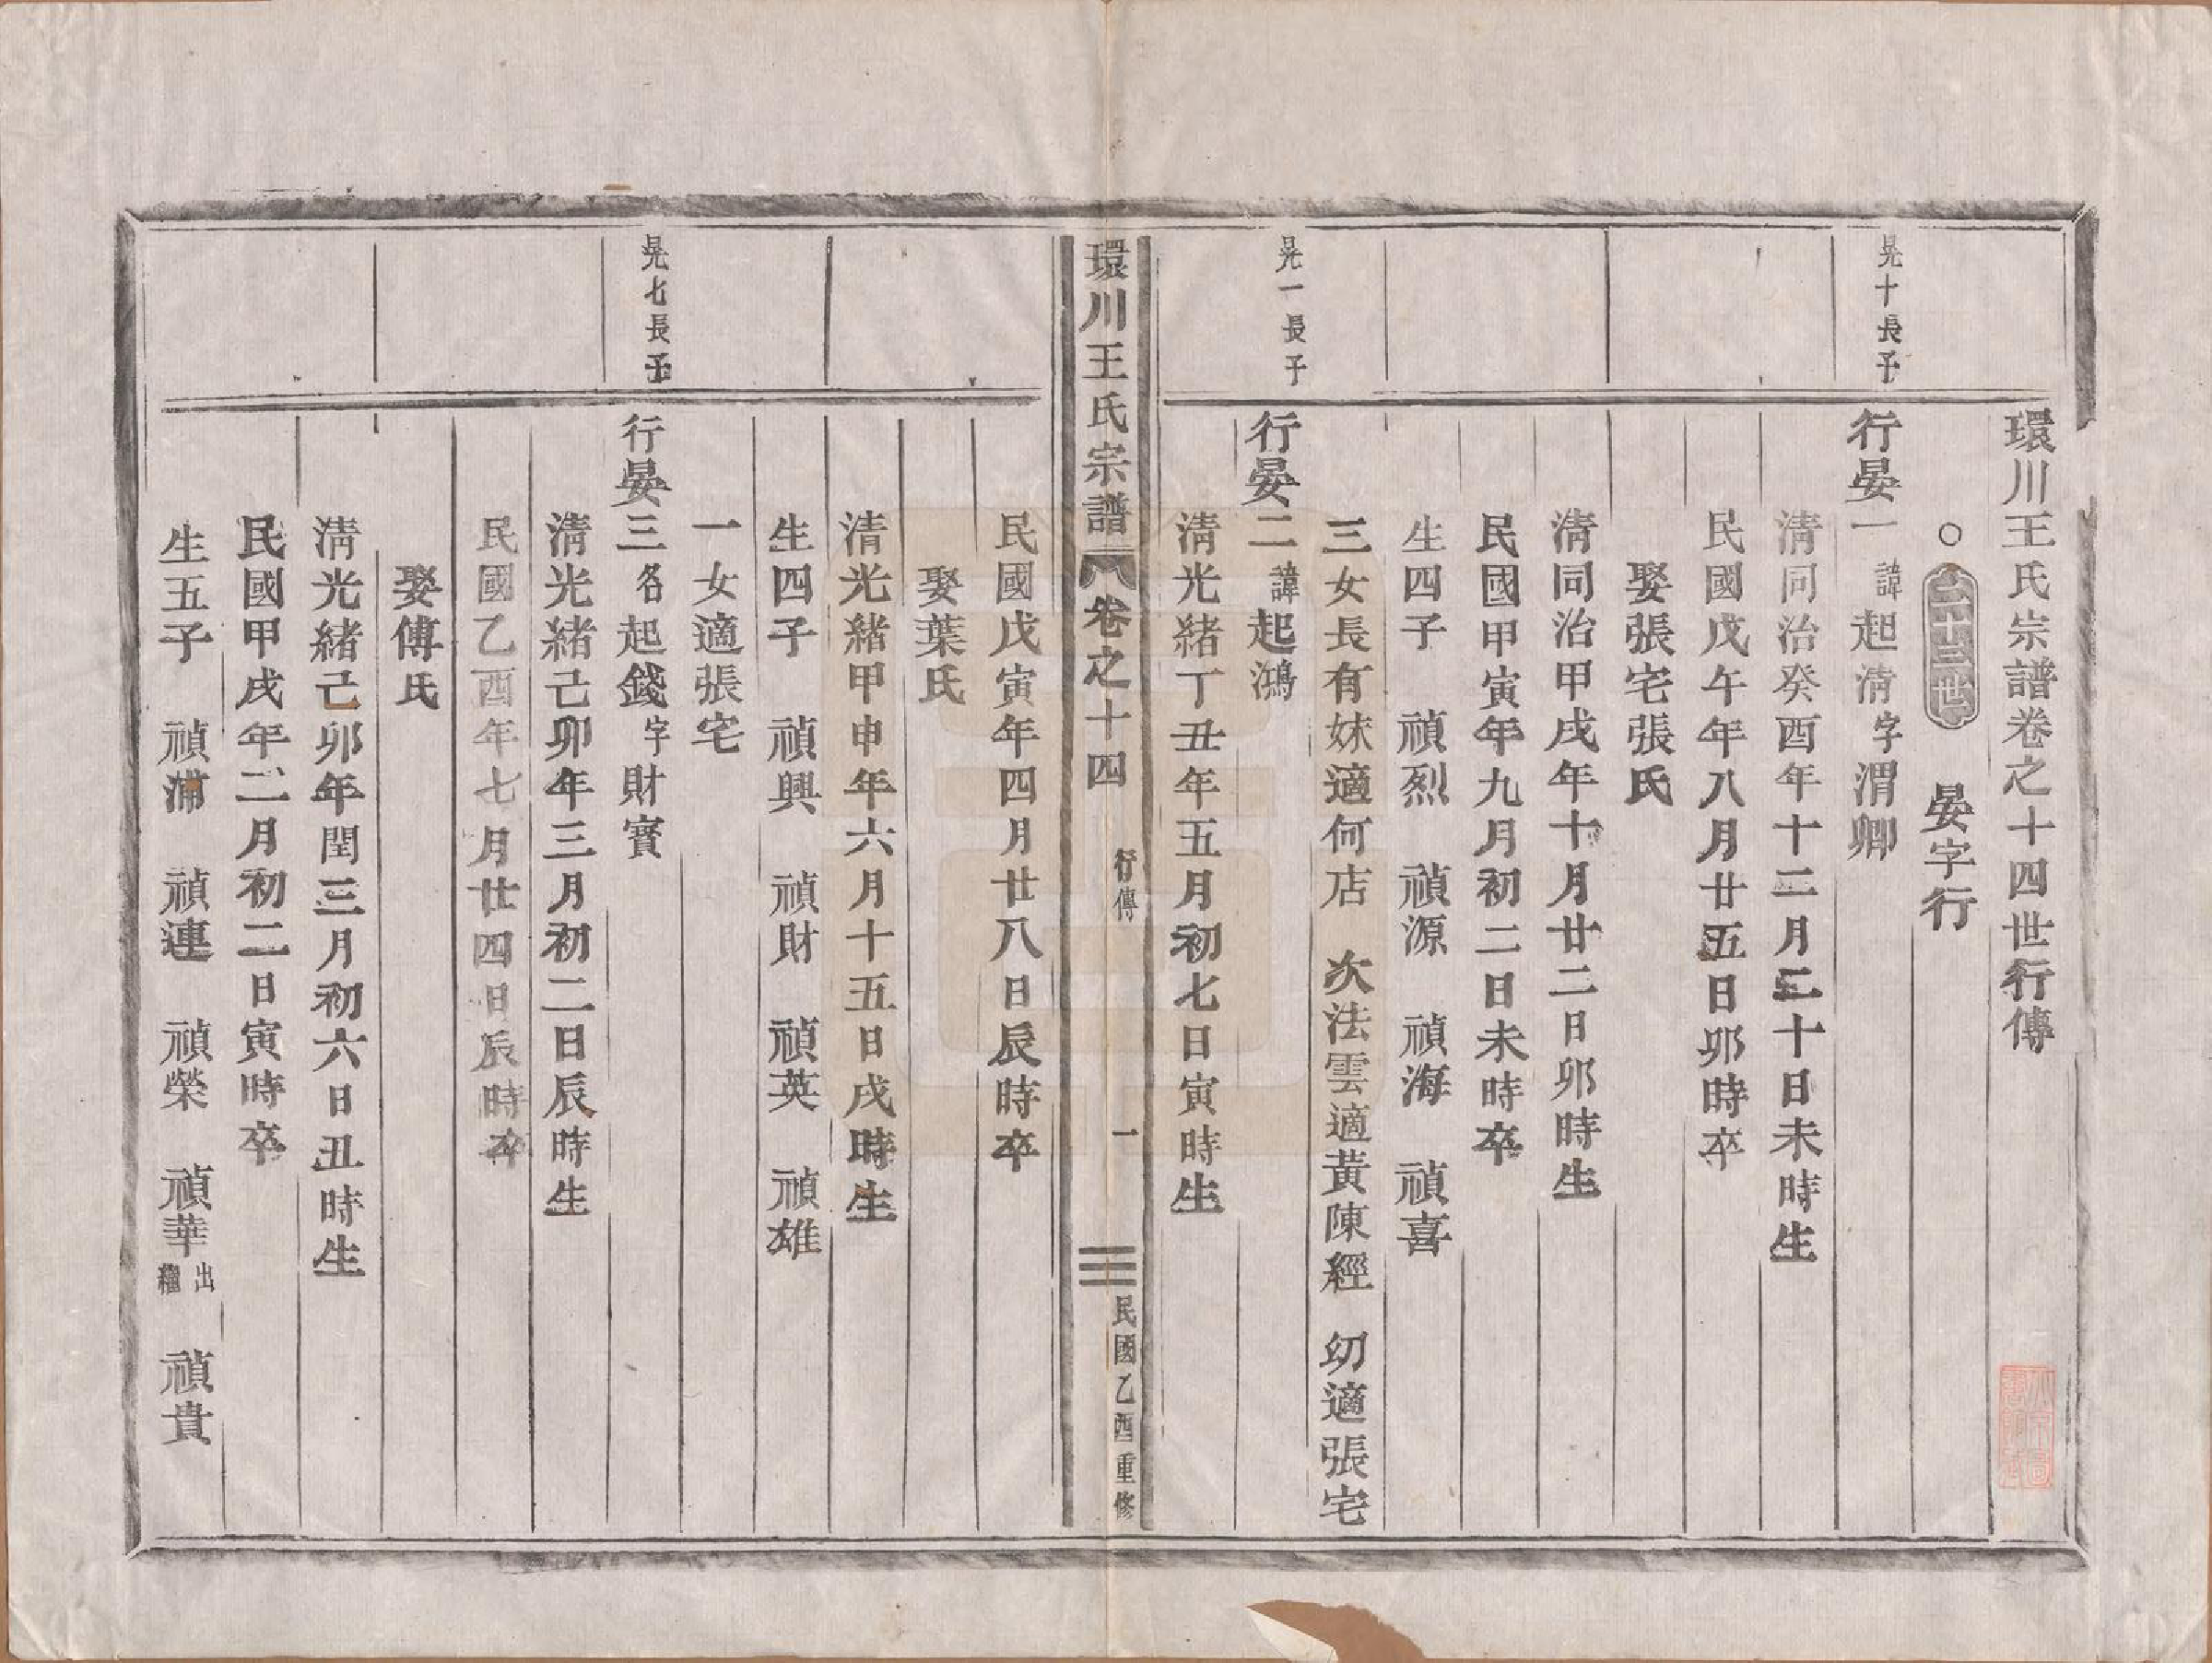 環川王氏宗譜卷之十四世行傳
○二十三世　晏字行
晃十長子
行晏一諱起清字渭卿
清同治癸酉年十二月二十日未時生
民國戊午年八月廿五日卯時卒
娶張宅張氏
清同治甲戌年十月廿二日卯時生
民國甲寅年九月初二日未時卒
生四子　禎烈　禎源　禎海　禎喜
三女長有妹適何店　次法雲適黃陳經　幼適張宅
晃一長子
行晏二諱起鴻
清光緒丁丑年五月初七日寅時生
環川王氏宗譜　卷之十四　行傳　一　民國乙酉重修
民國戊寅年四月廿八日辰時卒
娶葉氏
清光緒甲申年六月十五日戌時生
生四子　禎興　禎財　禎英　禎雄
一女適張宅
晃七長子
行晏三名起錢字財寶
清光緒己卯年三月初二日辰時生
民國乙酉年七月廿四日辰時卒
娶傅氏
清光緒己卯年閏三月初六日丑時生
民國甲戌年二月初二日寅時卒
生五子　禎浦　禎連　禎榮　禎華出繼　禎貴